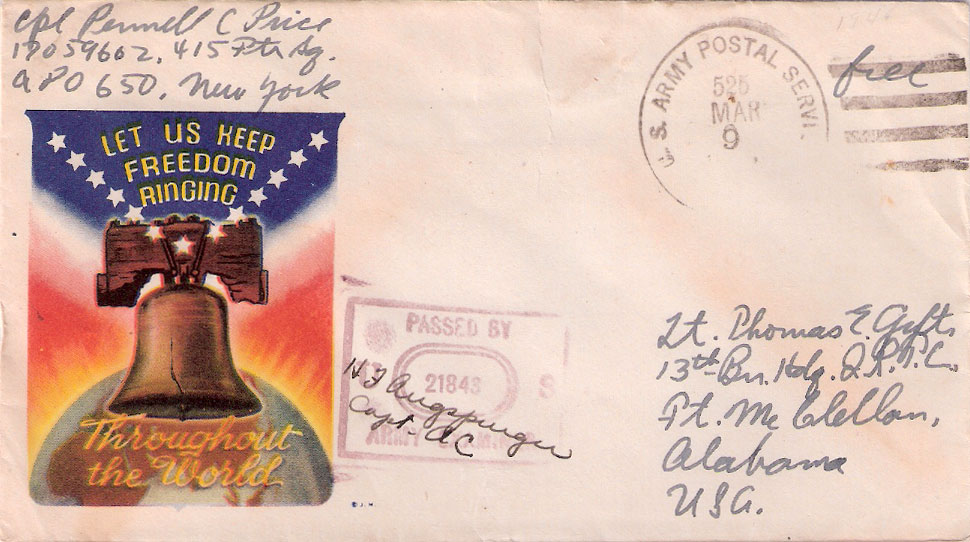 Cpl Pennell C Price
17059602, 415 Ftr Sq.
APO 650, New York
U.S. ARMY POSTAL SERVI.
525
MAR
9
free
LET US KEEP
FREEDOM
RINGING
Throughout
the World
PASSED BY
21848
S
ARMY EXAMINER
H J Augspurger
Capt. AC
Lt. Thomas E.
13th Bn. Hdq. I.R.T.C.
Ft. Mc Clellan,
Alabama
USA.